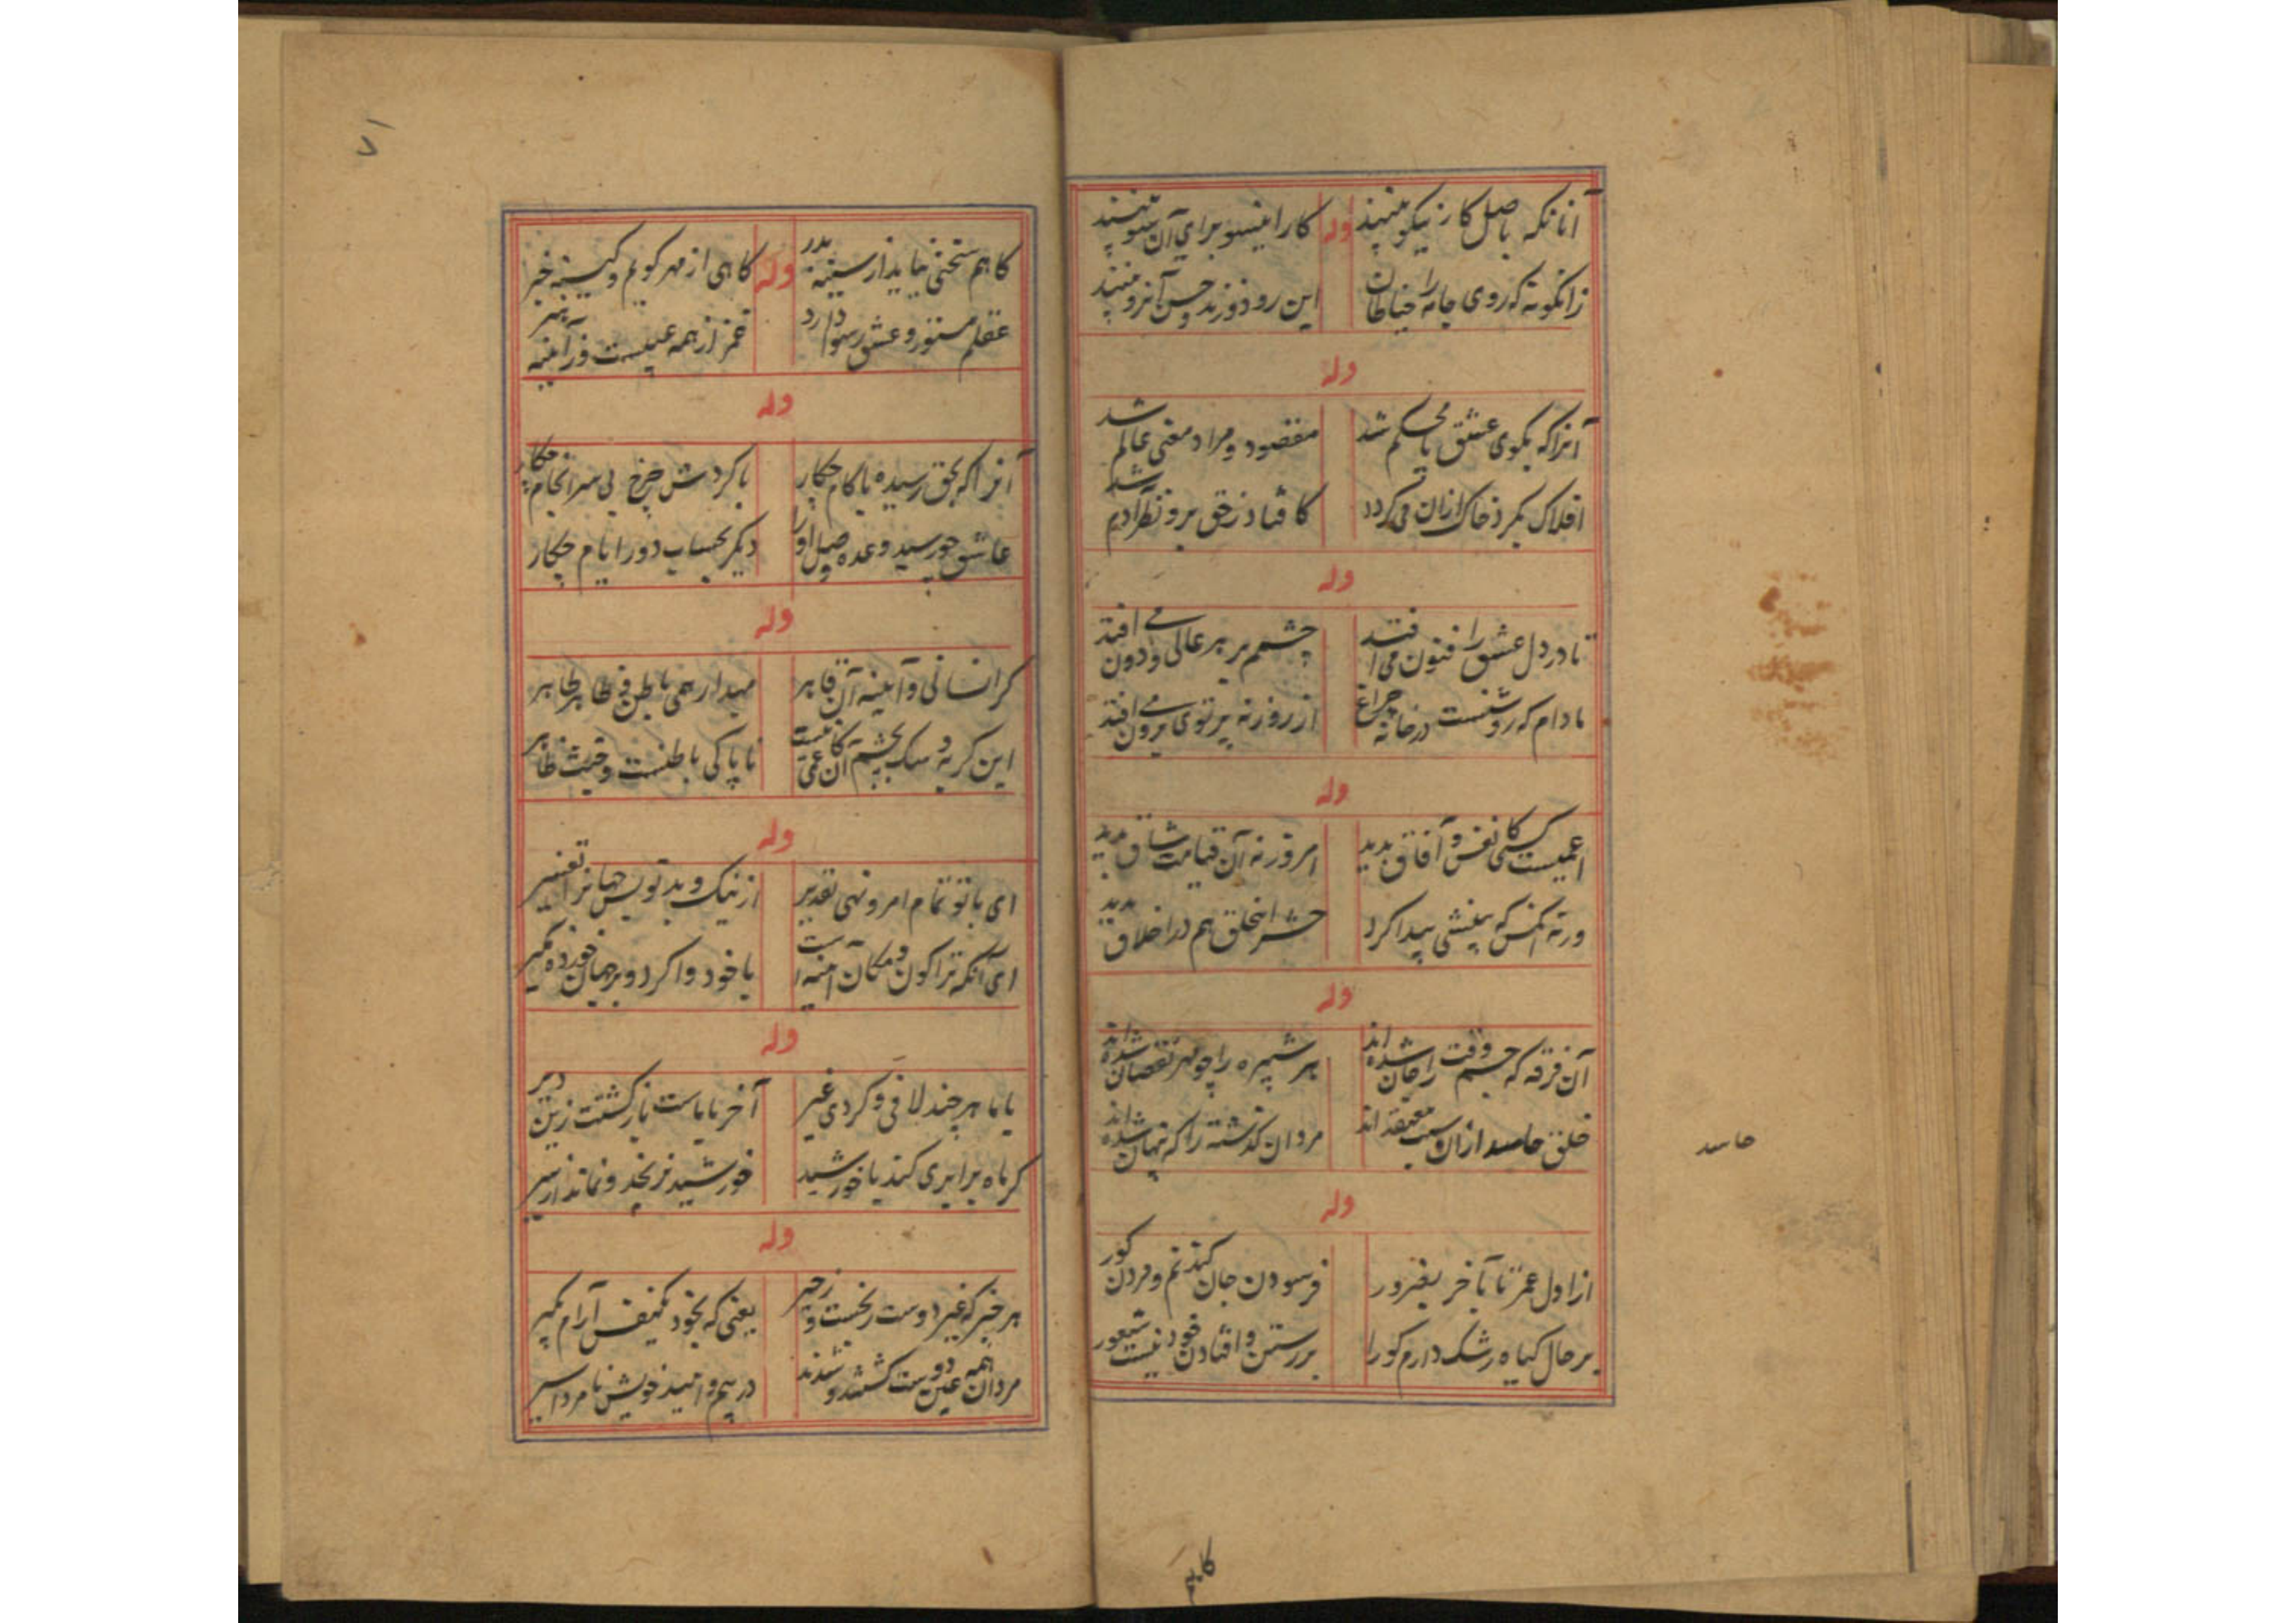 آنانکه باصل کار نیکو بینند
وله
کار اینسو برای آن سو بینند
زانگونه که روی جامه را خیاطان
این رو دوزند و حسن آنرو بینند
وله
آنرا که بکوی عشق پا محکم شد
مقصود و مراد معنی عالم شد
افلاک بگرد خاک ازان می گردد
کافتاد ز حق برو نظر آدم شد
وله
تا در دل عشق را فنون می افتد
چشم بر هر عالی و دون می افتد
مادام که روشنست در خانه چراغ
از روزنه پرتوی برون می افتد
وله
اعمیست کسی کانفس و آفاق ندید
امروز نه آن قیامت شاق ندید
ورنه آنکس که بینشی پیدا کرد
حشر از خلق هم در اخلاق ندید
وله
آن فرقه که جسم وقت را جان شده اند
بر شپره را چو مهر نقصان شده اند
خلق حاسد ازان سبب معتقد اند
مردان گذشته را که پنهان شده اند
حاسد
وله
از اول عمر تا بآخر بغرور
فرسودن جان کندنم و مردن کور
بر حال گیاه رشک دارم کورا
بر رستن و افتادن خود نیست شعور
کاهم
۷۱
کاهم سخنی نیاید از سینه بدر
وله
کاهی از مهر گویم و کینه خبر
عقلم مستور و عشق رسوا دارد
غمز از همه عیبست و ز آیینه هنر
وله
آنرا که بحق رسیده با کام چکار
با گردش چرخ بی سرانجام چکار
عاشق چو رسید وعده وصل او را
دیگر بحساب دور ایام چکار
وله
گر انسانی و آینه آن قاهر
میدار همی باطن و ظاهر طاهر
این گربه و سگ بچشم آن کاعمی نیست
ناپاکی باطنست و خبث ظاهر
وله
ای با تو تمام امر و نهی تقدیر
از نیک و بد تویس جهانرا تغییر
ای آنکه ترا کون و مکان آینه است
با خود واگرد و بر جهان خورده مگیر
وله
با ما هر چند لافی و گردی غیر
آخر با ماست بازگشتت زین دیر
گر ماه برابری کند با خورشید
خورشید نرنجد و نماند از سیر
وله
هر چیز که غیر دوست رنجست و زحیر
یعنی که بخود یکنفس آرام مگیر
مردان همه عین دوست گشتند و شدند
در بیم و امید خویش نامرد اسیر